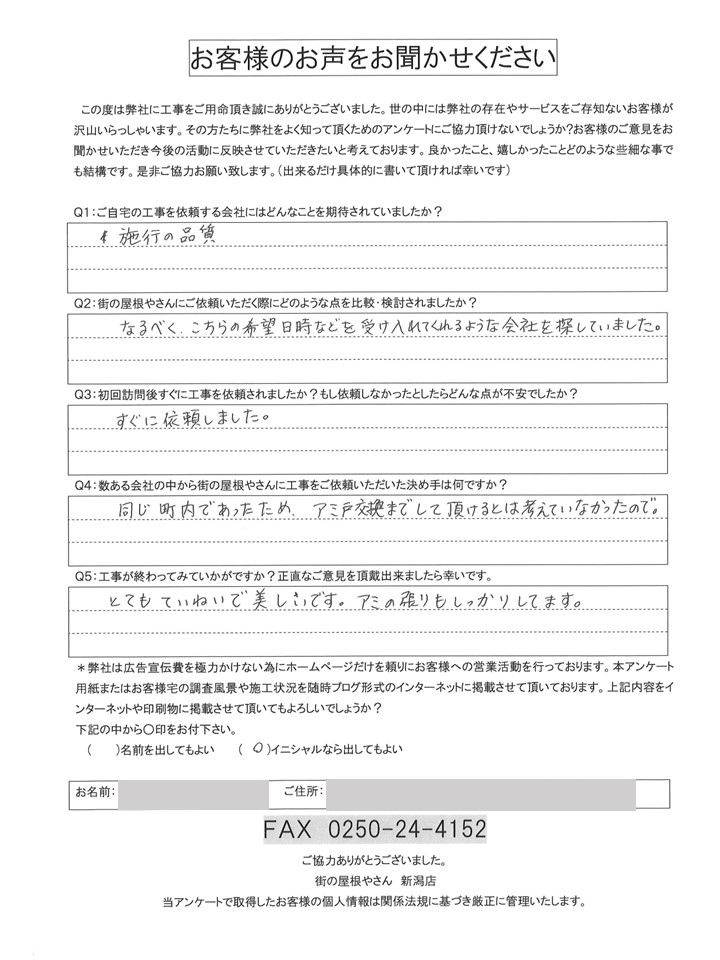 お客様のお声をお聞かせください
この度は弊社に工事をご用命頂き誠にありがとうございました。世の中には弊社の存在やサービスをご存知ないお客様が
沢山いらっしゃいます。その方たちに弊社をよく知って頂くためのアンケートにご協力頂けないでしょうか?お客様のご意見をお
聞かせいただき今後の活動に反映させていただきたいと考えております。良かったこと、嬉しかったことどのような些細な事で
も結構です。是非ご協力お願い致します。(出来るだけ具体的に書いて頂ければ幸いです)
Q1:ご自宅の工事を依頼する会社にはどんなことを期待されていましたか?
施行の品質
Q2:街の屋根やさんにご依頼いただく際にどのような点を比較・検討されましたか?
なるべく、こちらの希望日時などを受け入れてくれるような会社を探していました。
Q3:初回訪問後すぐに工事を依頼されましたか?もし依頼しなかったとしたらどんな点が不安でしたか?
すぐに依頼しました。
Q4:数ある会社の中から街の屋根やさんに工事をご依頼いただいた決め手は何ですか?
同じ町内であったため、アミ戸交換までして頂けるとは考えていなかったので。
Q5:工事が終わってみていかがですか?正直なご意見を頂戴出来ましたら幸いです。
とてもていねいで美しいです。アミの張りもしっかりしてます。
*弊社は広告宣伝費を極力かけない為にホームページだけを頼りにお客様への営業活動を行っております。本アンケート
用紙またはお客様宅の調査風景や施工状況を随時ブログ形式のインターネットに掲載させて頂いております。上記内容をイ
ンターネットや印刷物に掲載させて頂いてもよろしいでしょうか?
下記の中から〇印をお付下さい。
( )名前を出してもよい (〇)イニシャルなら出してもよい
お名前: ご住所:
FAX 0250-24-4152
ご協力ありがとうございました。
街の屋根やさん 新潟店
当アンケートで取得したお客様の個人情報は関係法規に基づき厳正に管理いたします。